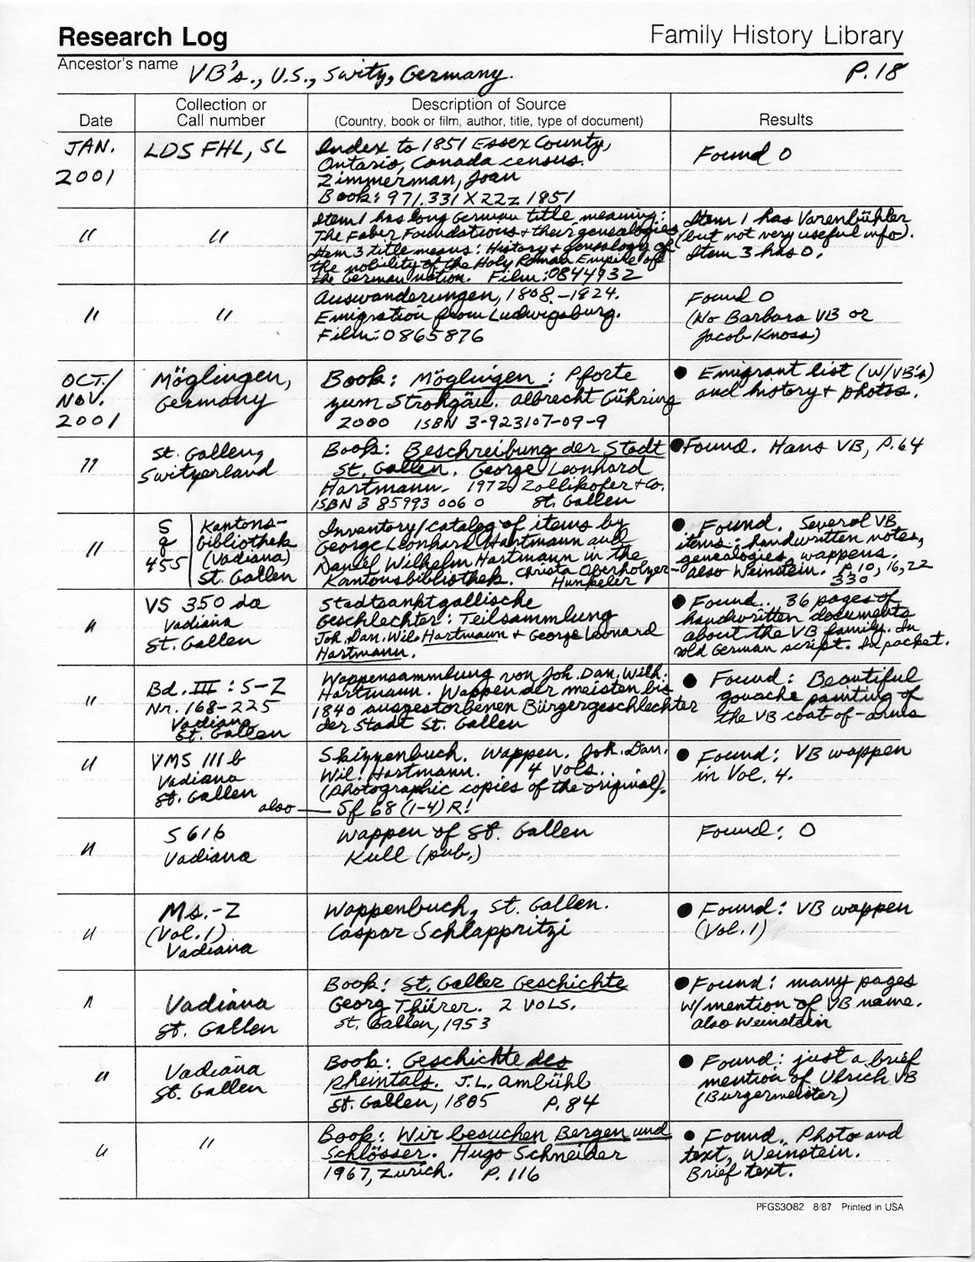 Research Log
Family History Library
Ancestor's name VB's., U.S., Switz, Germany. P.18
Date
Collection or
Call number
Description of Source
(Country, book or film, author, title, type of document)
Results
JAN.
2001
LDS FHL, SL
Index to 1851 Essex County,
Ontario, Canada census.
Zimmerman, Joan
Book: 971.331 X22z 1851
Found 0
"
"
Item 1 has long German title meaning:
The Faber Foundations & their genealogies.
Item 3 title means: History & genealogy of
the nobility of the Holy Roman Empire of
the German nation. Film: 0844932
Item 1 has Varenbühler
(but not very useful info).
Item 3 has 0.
"
"
Auswanderungen, 1808-1824.
Emigration from Ludwigsburg.
Film: 0865876
Found 0
(No Barbara VB or
Jacob Knoss)
OCT./
NOV.
2001
Möglingen,
Germany
Book: Möglingen: Pforte
zum Strohgäu. Albrecht Gühring
2000 ISBN 3-923107-09-9
● Emigrant list (w/VB's)
and history & photos.
"
St. Gallen,
Switzerland
Book: Beschreibung der Stadt
St. Gallen. George Leonhard
Hartmann. 1972, Zollikofer & Co.
ISBN 3 85993 006 0 St. Gallen
● Found. Hans VB, P.64
"
S
q
455
Kantons-
bibliothek
(Vadiana)
St. Gallen
Inventory/catalog of items by
George Leonhard Hartmann and
Daniel Wilhelm Hartmann in the
Kantonsbibliothek. Christa Oberholzer-
Hunkeler
● Found. Several VB
items: handwritten notes,
genealogies, wappens.
also Weinstein. P.10, 16, 22
330
"
VS 350 da
Vadiana
St. Gallen
Stadtsanktgallische
Geschlechter: Teilsammlung
Joh. Dan. Wil. Hartmann & George Leonard
Hartmann.
● Found. 36 pages of
handwritten documents
about the VB family. In
old German script. In packet.
"
Bd. III: S-Z
Nr. 168-225
Vadiana
St. Gallen
Wappensammlung von Joh. Dan. Wilh.
Hartmann. Wappen der meisten bis
1840 ausgestorbenen Bürgergeschlechter
der Stadt St. Gallen
● Found: Beautiful
gouache painting of
the VB coat-of-arms
"
VMS 111 b
Vadiana
St. Gallen
also
Skizzenbuch. Wappen. Joh. Dan.
Wil. Hartmann. 4 vols.
(photographic copies of the original).
Sf 68 (1-4) R!
● Found: VB wappen
in Vol. 4.
"
S 616
Vadiana
Wappen of St. Gallen
Kull (pub.)
Found: 0
"
Ms.-Z
(Vol. 1)
Vadiana
Wappenbuch, St. Gallen.
Caspar Schlappritzi
● Found: VB wappen
(Vol. 1)
"
Vadiana
St. Gallen
Book: St. Galler Geschichte
Georg Thürer. 2 VOLS.
St. Gallen, 1953
● Found: many pages
w/mention of VB name.
also Weinstein
"
Vadiana
St. Gallen
Book: Geschichte des
Rheintals. J.L. Ambühl
St. Gallen, 1805 P.84
● Found: just a brief
mention of Ulrich VB
(Burgermeister)
"
"
Book: Wir besuchen Bergen und
Schlösser. Hugo Schneider
1967, Zurich. P.116
● Found. Photo and
text, Weinstein.
Brief text.
PFGS3082 8/87 Printed in USA